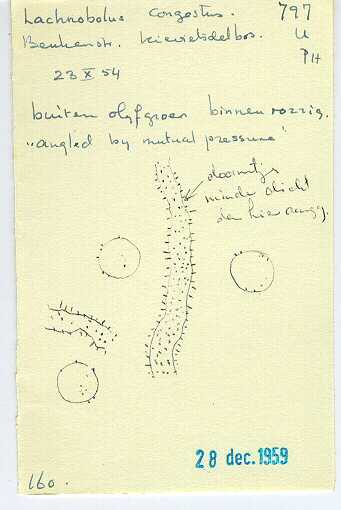 Lachnobolus congestus. 797
Beukenstr. kievietsdelbos. U
PH
23 X 54
buiten olyfgroen binnen rozzig.
"angled by mutual pressure"
doorntjes
minder dicht
dan hier aangeg.
28 dec. 1959
160.